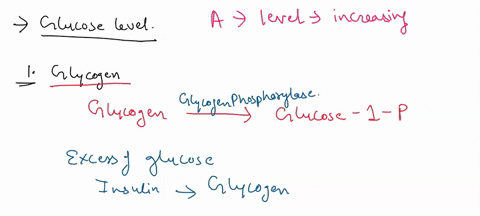 → Glucose level.
A → level → increasing
1. Glycogen
Glycogen Phosphorylase.
Glycogen → Glucose-1-P
Excess of glucose
Insulin → Glycogen